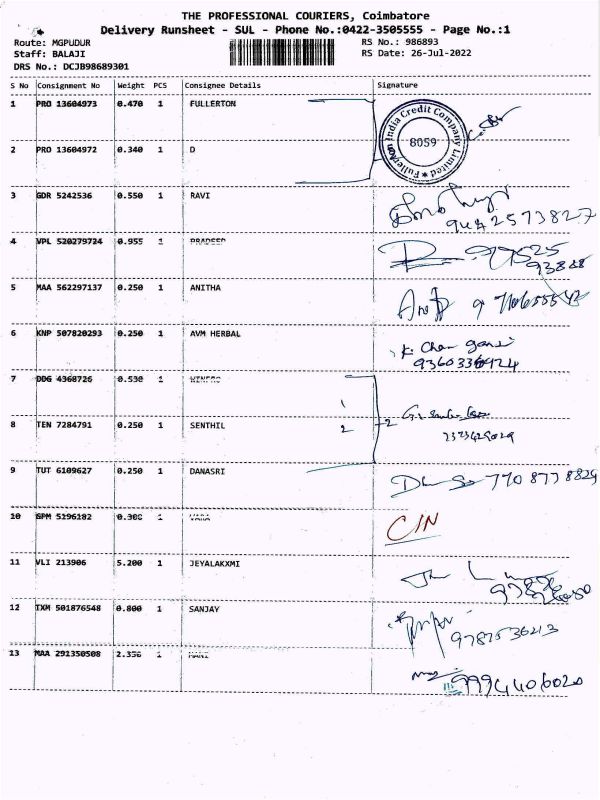 THE PROFESSIONAL COURIERS, Coimbatore
Delivery Runsheet - SUL - Phone No.:0422-3505555 - Page No.:1
Route: MGPUDUR
RS No.: 986893
Staff: BALAJI
RS Date: 26-Jul-2022
DRS No.: DCJB98689301
S No Consignment No Weight PCS Consignee Details Signature
1 PRO 13604973 0.470 1 FULLERTON
Fullerton India Credit Company Limited
8059
2 PRO 13604972 0.340 1 D
3 GDR 5242536 0.550 1 RAVI
9442573827
4 VPL 520279724 0.955 1 PRADEEP
97525
93888
5 MAA 562297137 0.250 1 ANITHA
6 KNP 507820293 0.250 1 AVM HERBAL
7 DDG 4368726 0.530 1
8 TEN 7284791 0.250 1 SENTHIL
9 TUT 6109627 0.250 1 DANASRI
770 877 8829
10 1
CIN
11 VLI 213906 5.200 1 JEYALAKXMI
12 TXM 501876548 0.800 1 SANJAY
9787536213
13 MAA 291350508 2.356 1 MANI
9994406020